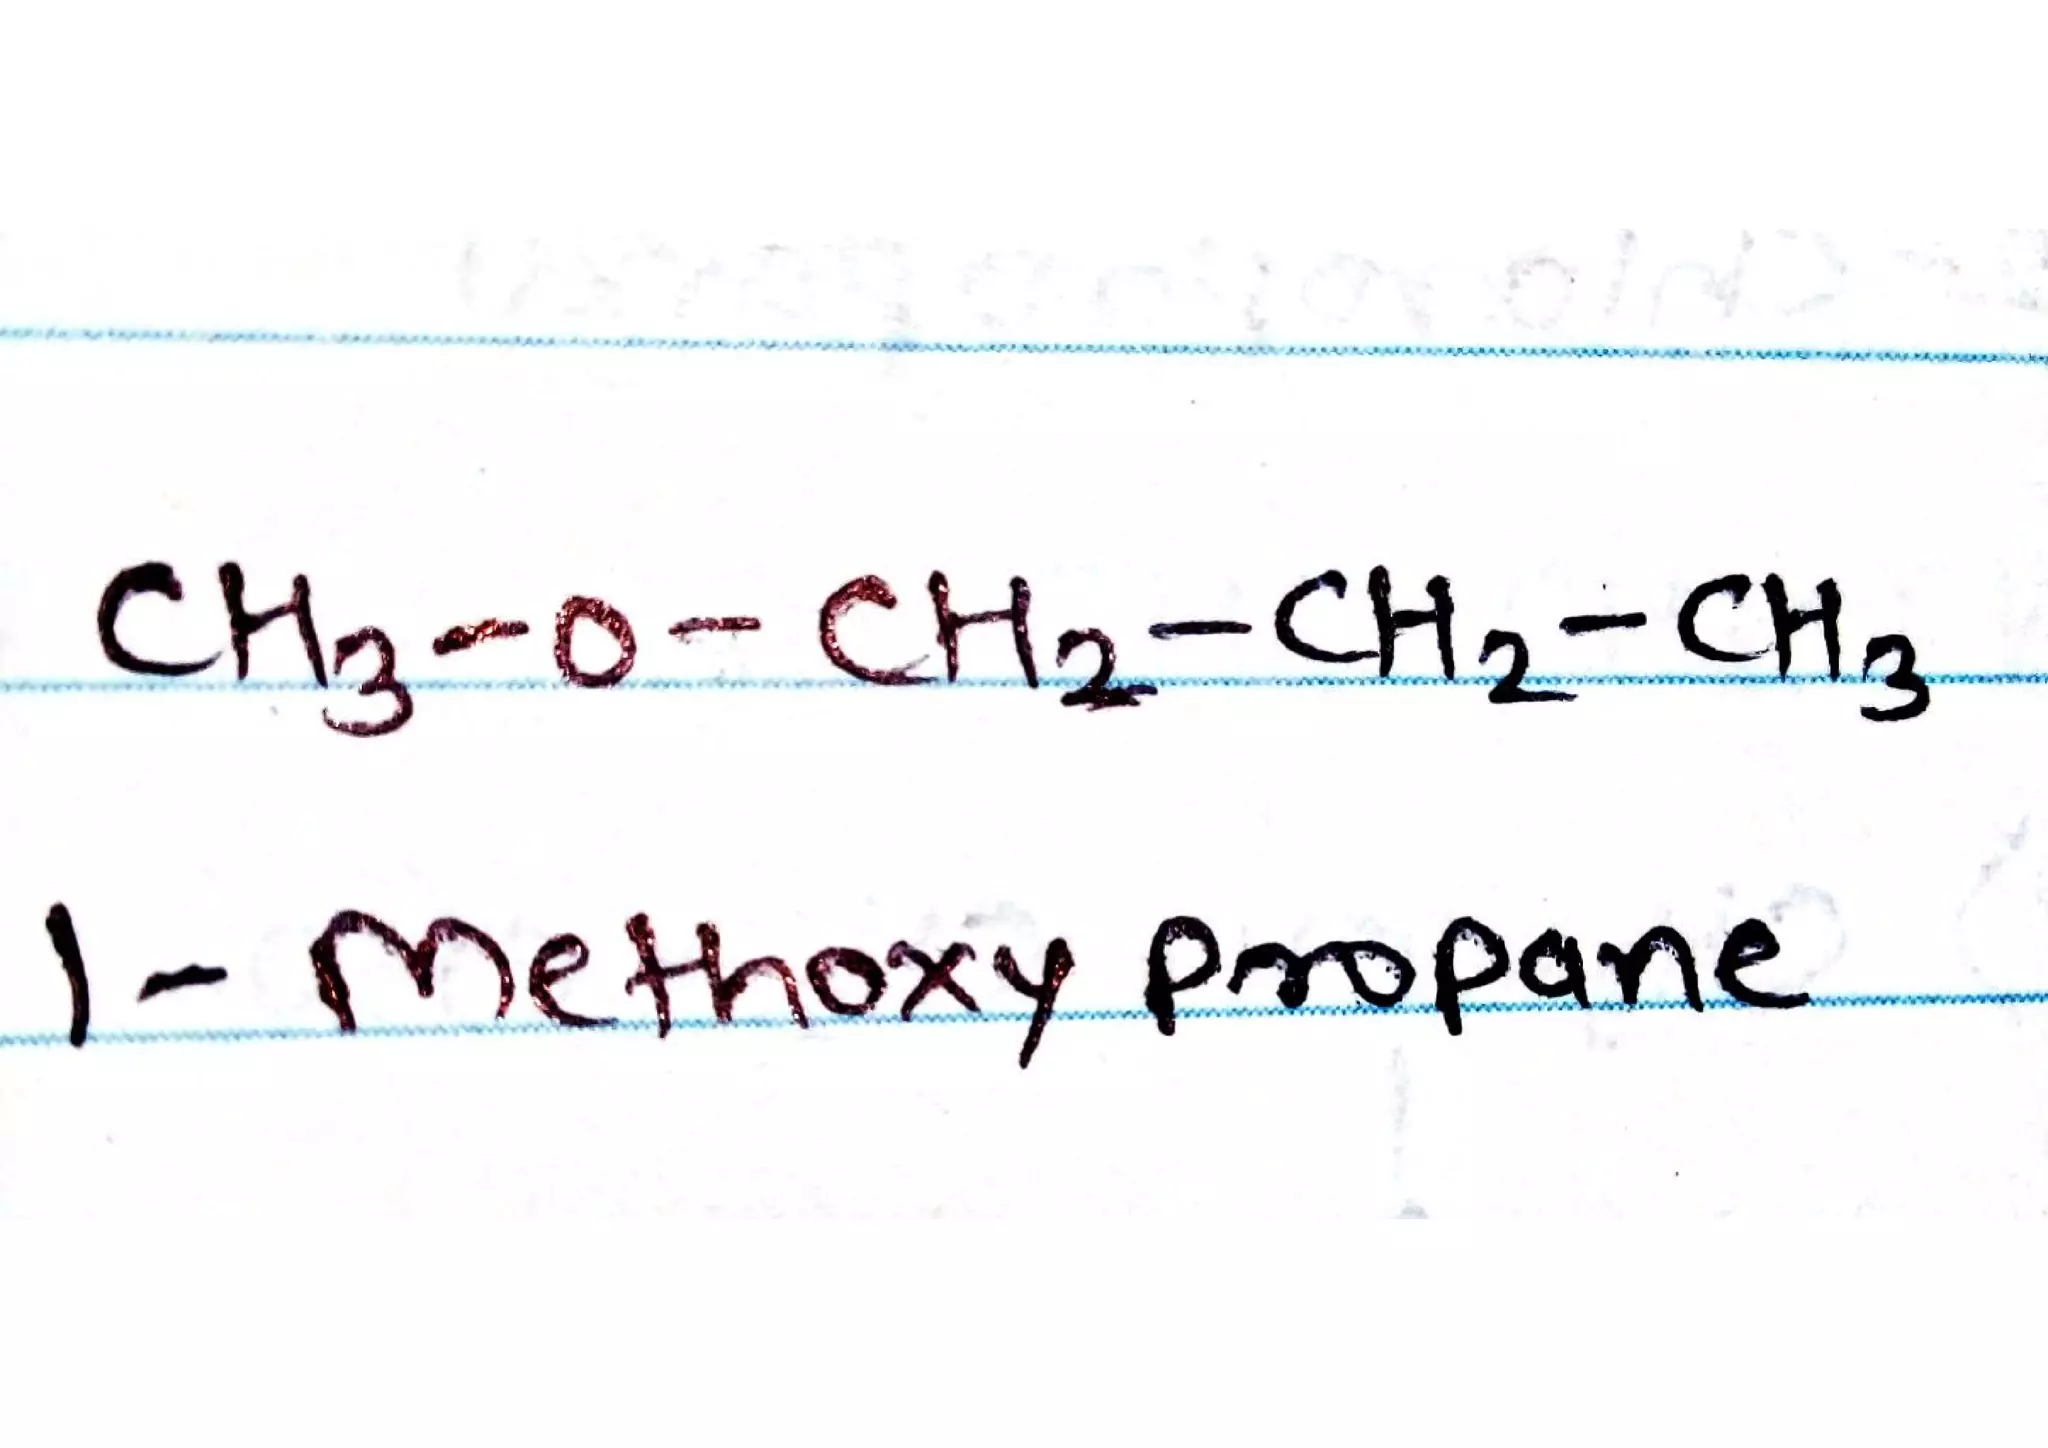 CH₃-O-CH₂-CH₂-CH₃
1-Methoxy propane